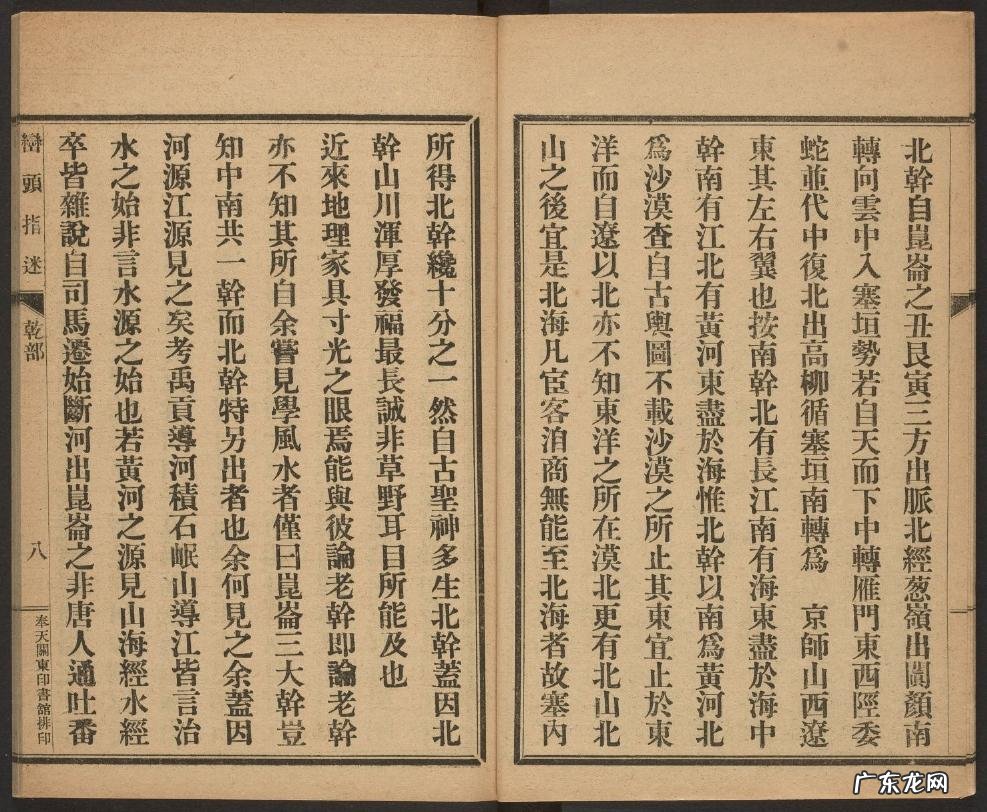 北幹自崑崙之丑艮寅三方出脈北經葱嶺出闐顏南
轉向雲中入塞垣勢若自天而下中轉雁門東西陘委
蛇並代中復北出高柳循塞垣南轉爲　京師山西遼
東其左右翼也按南幹北有長江南有海東盡於海中
幹南有江北有黃河東盡於海惟北幹以南爲黃河北
爲沙漠查自古輿圖不載沙漠之所止其東宜止於東
洋而自遼以北亦不知東洋之所在漠北更有北山北
山之後宜是北海凡宦客洎商無能至北海者故塞內
所得北幹纔十分之一然自古聖神多生北幹蓋因北
幹山川渾厚發福最長誠非草野耳目所能及也
近來地理家具寸光之眼焉能與彼論老幹即論老幹
亦不知其所自余嘗見學風水者僅曰崑崙三大幹豈
知中南共一幹而北幹特另出者也余何見之余蓋因
河源江源見之矣考禹貢導河積石岷山導江皆言治
水之始非言水源之始也若黃河之源見山海經水經
卒皆雜說自司馬遷始斷河出崑崙之非唐人通吐番
巒頭指迷
乾部
八
奉天關東印書館排印
广东龙网